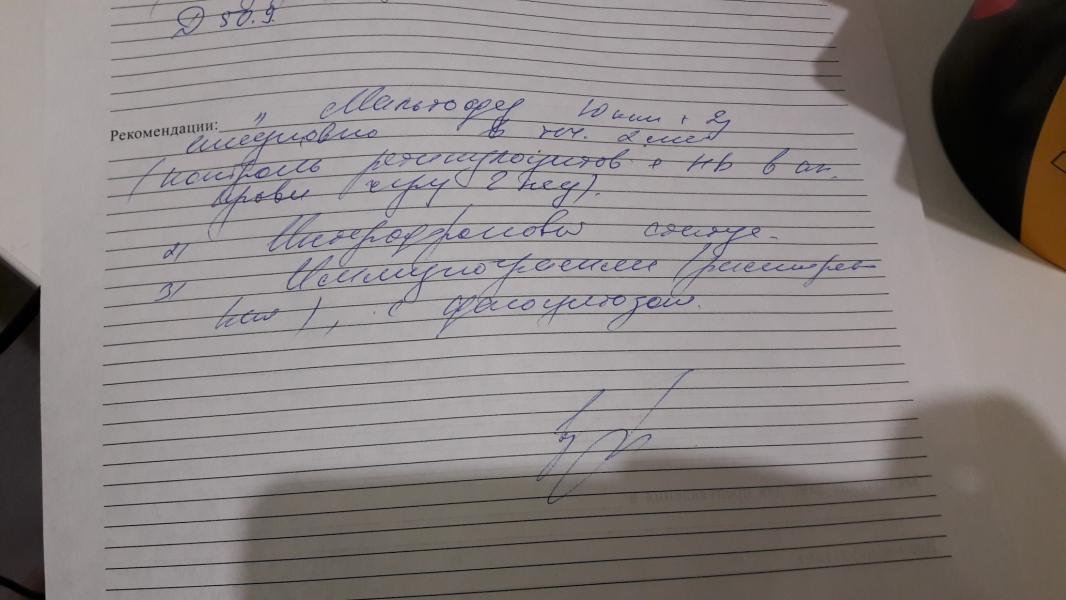 D 50.9.
Рекомендации: 1) Мальтофер 10 кап × 2р
ежедневно в теч. 2 мес
(контроль ретикулоцитов + Hb в ан.
крови через 2 нед).
2) Интерфероновый статус.
3) Иммунограмма (расширен
ная), с фагоцитозом.